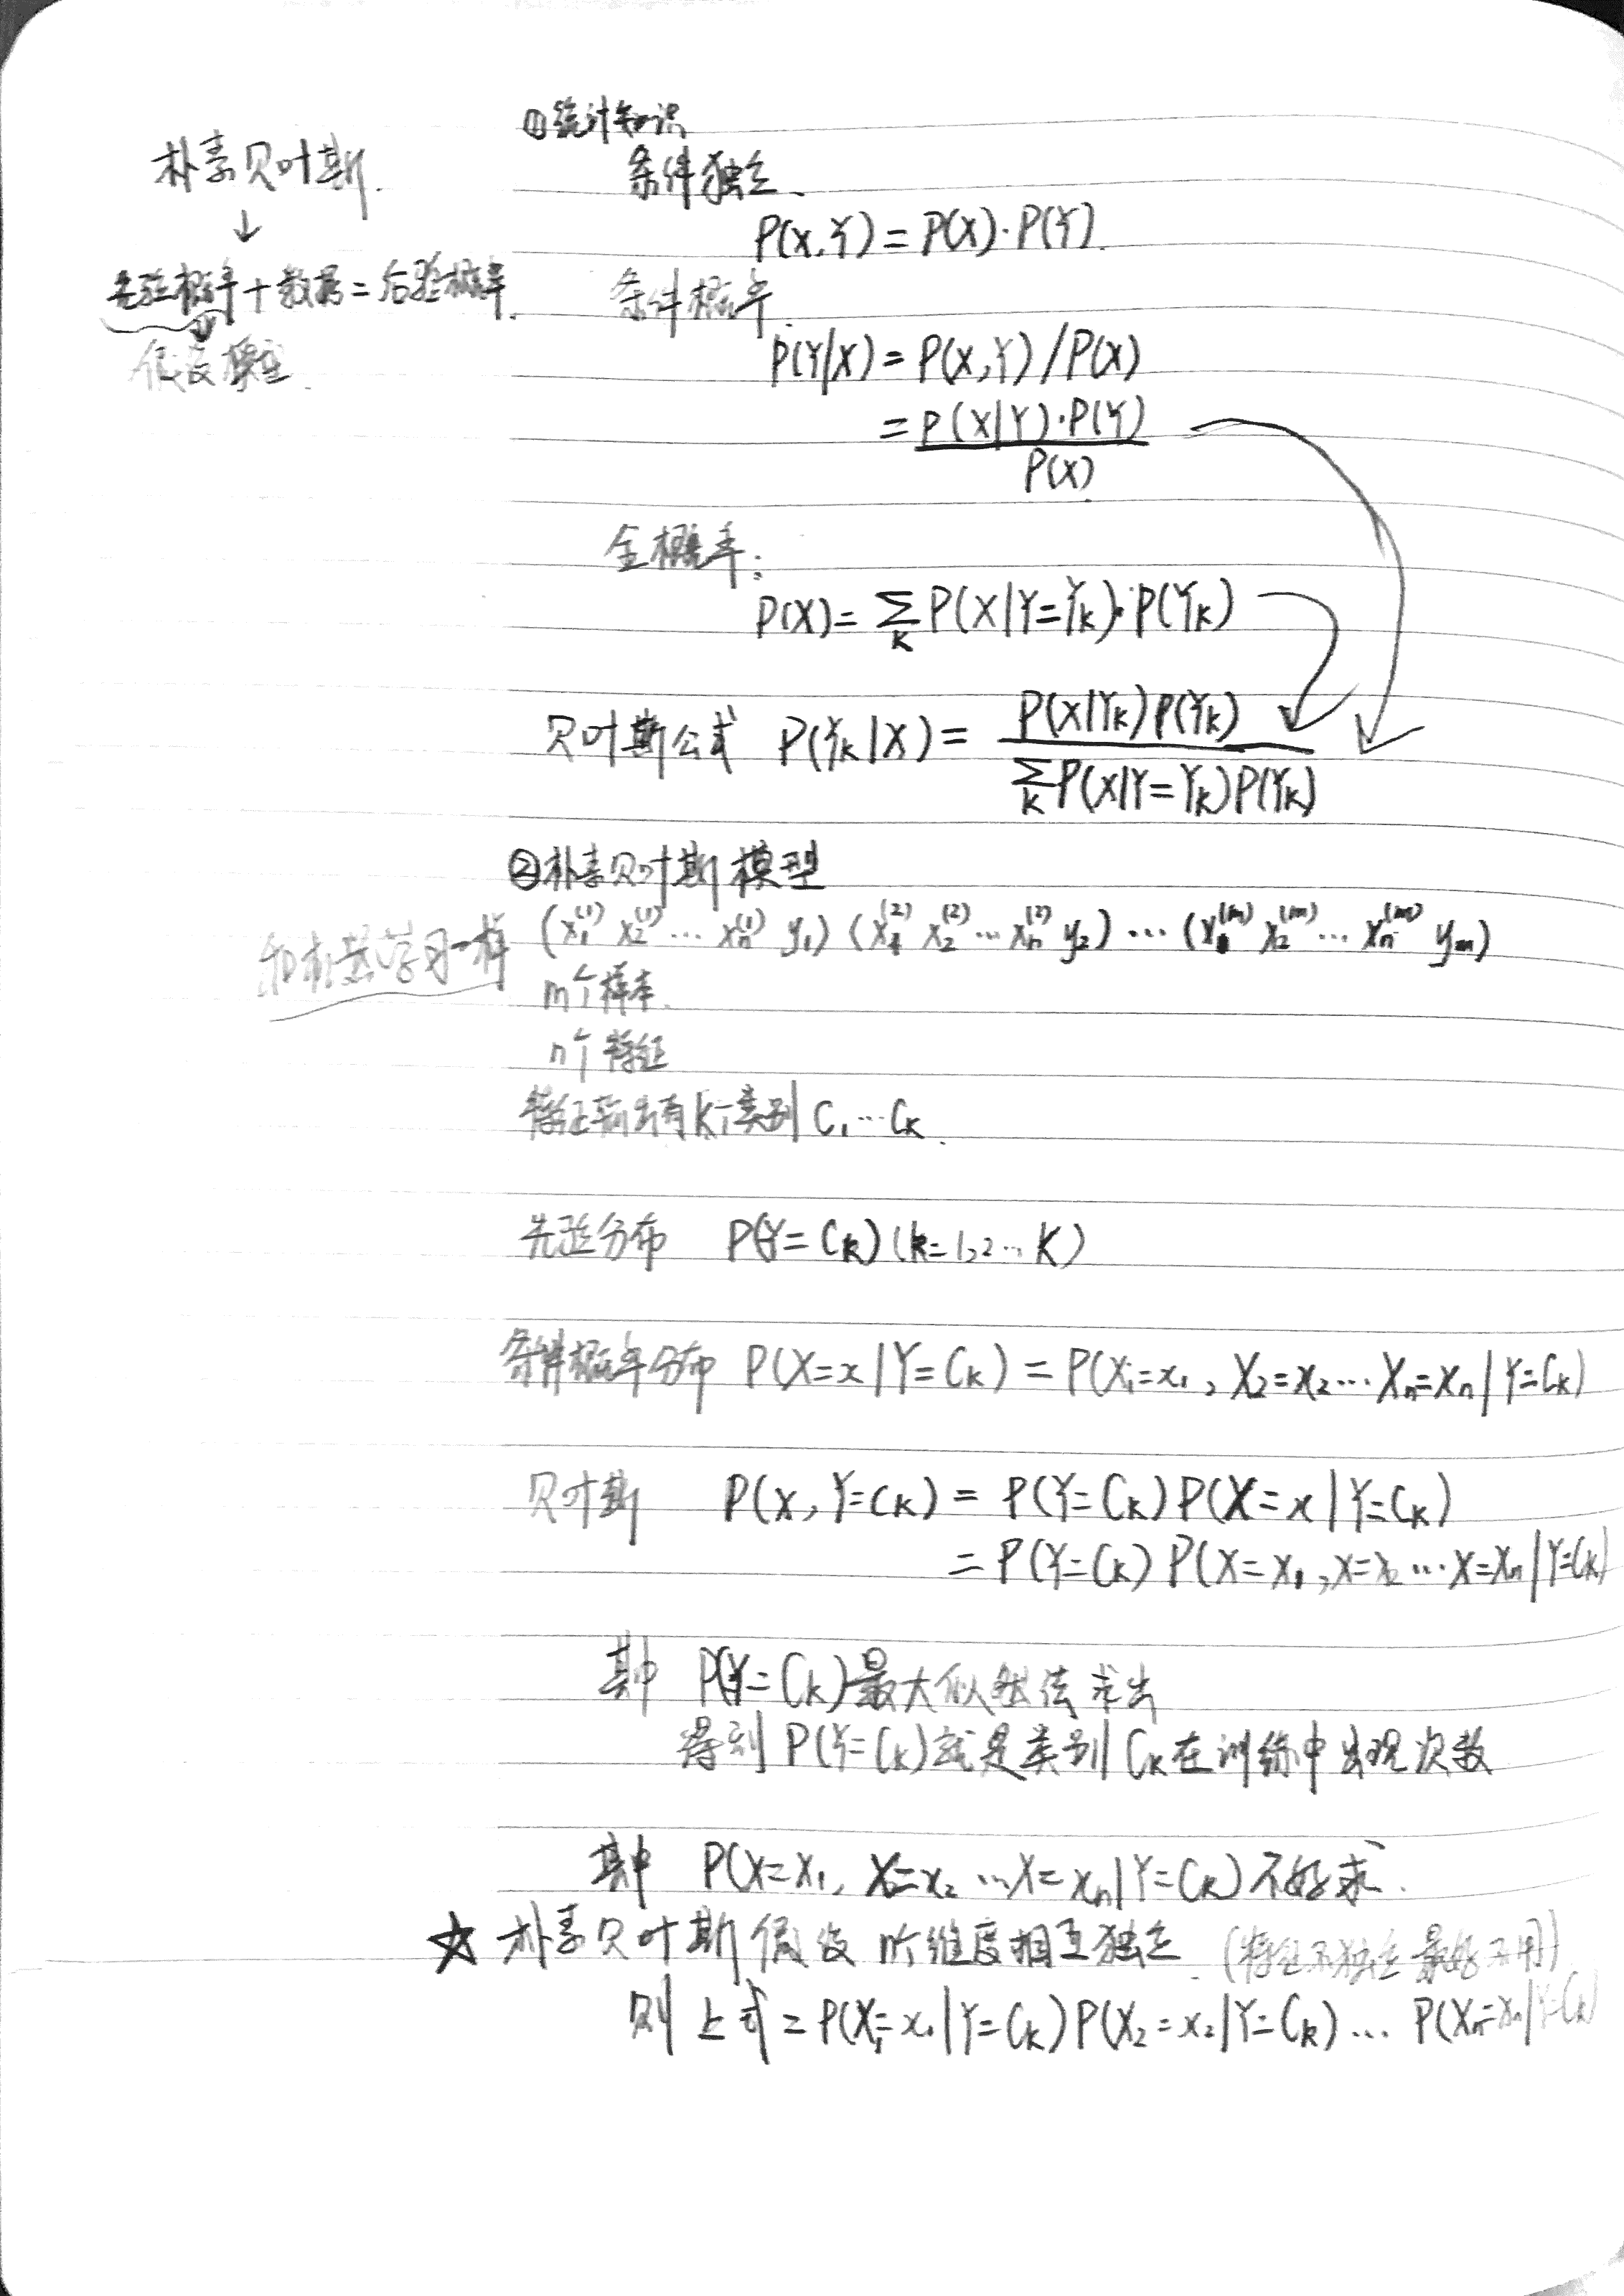 朴素贝叶斯.
↓
先验概率+数据=后验概率.
↓
假设模型.
①统计知识
条件独立、
P(X,Y)=P(X)·P(Y).
条件概率.
P(Y|X)=P(X,Y)/P(X)
=P(X|Y)·P(Y)
P(X)
全概率:
P(X)=∑ₖP(X|Y=Yₖ)·P(Yₖ)
贝叶斯公式 P(Yₖ|X)= P(X|Yₖ)P(Yₖ)
∑ₖP(X|Y=Yₖ)P(Yₖ)
②朴素贝叶斯模型
和机器学习一样
(x₁⁽¹⁾ x₂⁽¹⁾…xₙ⁽¹⁾ y₁) (x₁⁽²⁾ x₂⁽²⁾…xₙ⁽²⁾ y₂)…(x₁⁽ᵐ⁾ x₂⁽ᵐ⁾…xₙ⁽ᵐ⁾ yₘ)
m个样本.
n个特征
特征输出有K个类别 C₁…Cₖ.
先验分布 P(Y=Cₖ)(k=1,2…K)
条件概率分布 P(X=x|Y=Cₖ)=P(X₁=x₁,X₂=x₂…Xₙ=xₙ|Y=Cₖ)
贝叶斯 P(X,Y=Cₖ)=P(Y=Cₖ)P(X=x|Y=Cₖ)
=P(Y=Cₖ)P(X=x₁,X=x₂…X=xₙ|Y=Cₖ)
其中 P(Y=Cₖ)最大似然法求出
得到P(Y=Cₖ)就是类别Cₖ在训练中出现次数
其中 P(X=x₁,X=x₂…X=xₙ|Y=Cₖ)不好求.
☆朴素贝叶斯假设n个维度相互独立.(特征不独立最好不用)
则上式=P(X₁=x₁|Y=Cₖ)P(X₂=x₂|Y=Cₖ)…P(Xₙ=xₙ|Y=Cₖ)